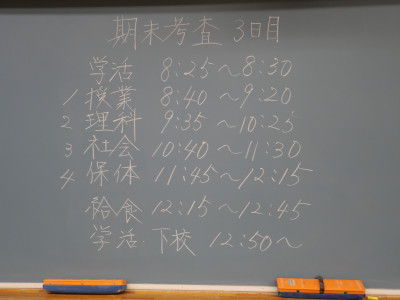 期末考査 3日目
学活 8:25～8:30
1 授業 8:40～9:20
2 理科 9:35～10:25
3 社会 10:40～11:30
4 保体 11:45～12:15
給食 12:15～12:45
学活・下校 12:50～